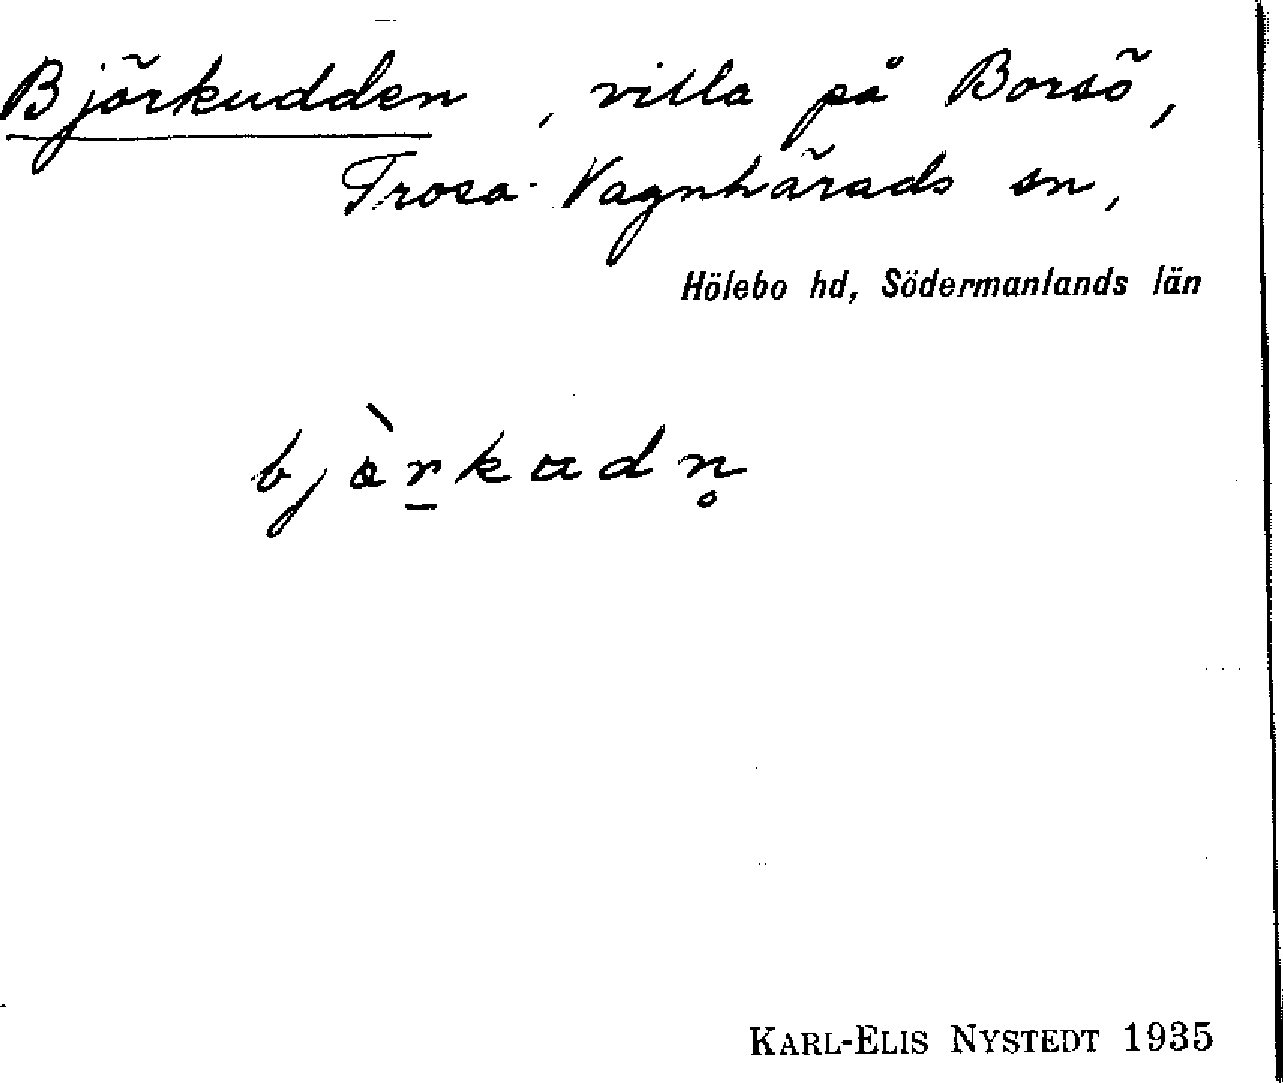 Björkudden, villa på Borsö,
Trosa-Vagnhärads sn,
Hölebo hd, Södermanlands län
bjò̱rkudn̥
KARL-ELIS NYSTEDT 1935